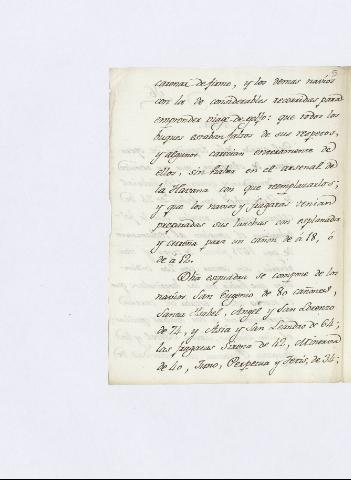 carenai de firme, y los demas navios
con la de considerables recorridas para
emprender viage de golfo: que todos los
buques estaban faltos de sus respetos,
y algunos carecian enteramente de
ellos, sin haber en el arsenal de
la Havana con que reemplazarlos;
y que los navios y fragatas venian
preparadas sus lanchas con esplanada
y cureña para un cañon de á 18, ó
de á 12.
Dha esquadra se compone de los
navios San Eugenio de 80 cañones,
Santa Isabel, Angel y San Lorenzo
de 74, y Asia y San Leandro de 64;
las fragatas Sirena de 42, Minerva
de 40, Juno, Perpetua y Tetis, de 34;